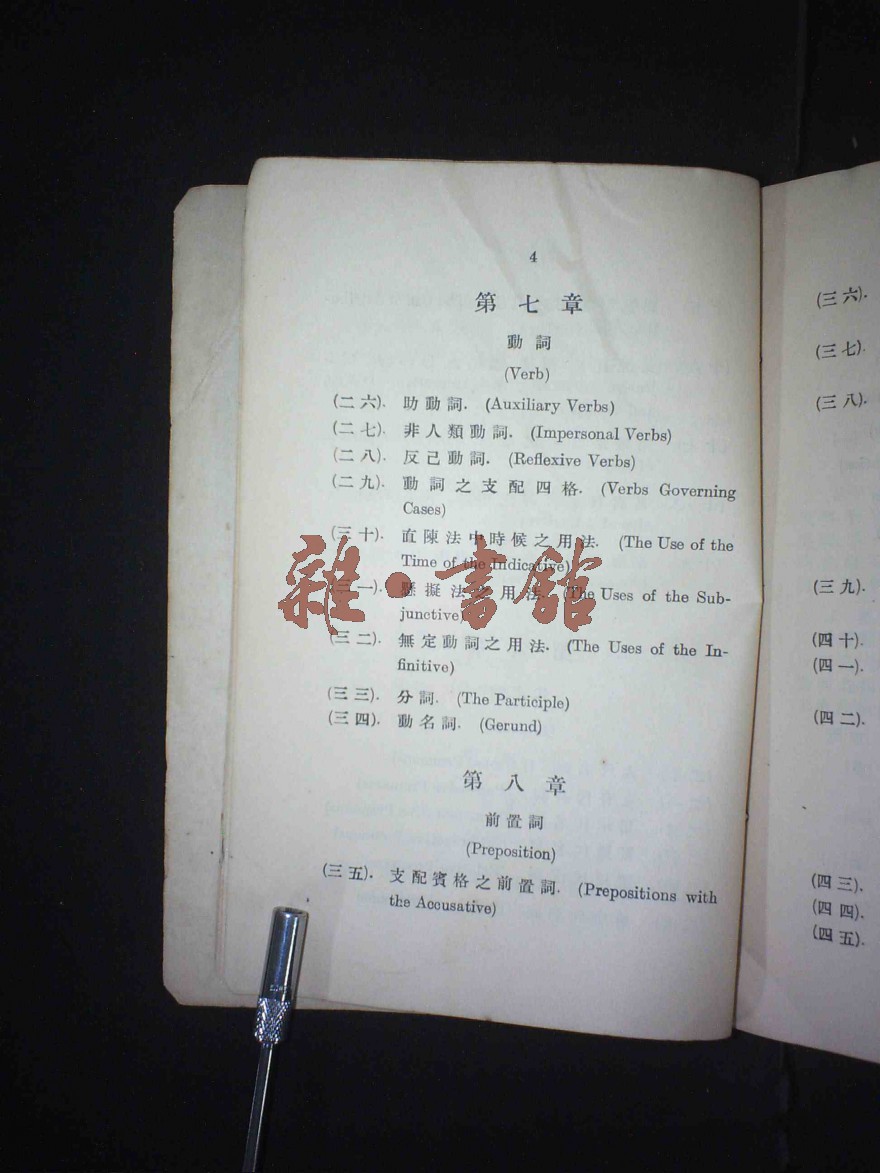 4
第七章
動詞
(Verb)
(二六). 助動詞. (Auxiliary Verbs)
(二七). 非人類動詞. (Impersonal Verbs)
(二八). 反己動詞. (Reflexive Verbs)
(二九). 動詞之支配四格. (Verbs Governing
Cases)
(三十). 直陳法中時候之用法. (The Use of the
Time of the Indicative)
(三一). 懸擬法之用法. (The Uses of the Sub-
junctive)
(三二). 無定動詞之用法. (The Uses of the In-
finitive)
(三三). 分詞. (The Participle)
(三四). 動名詞. (Gerund)
第八章
前置詞
(Preposition)
(三五). 支配賓格之前置詞. (Prepositions with
the Accusative)
雜·書館
(三六).
(三七).
(三八).
(三九).
(四十).
(四一).
(四二).
(四三).
(四四).
(四五).